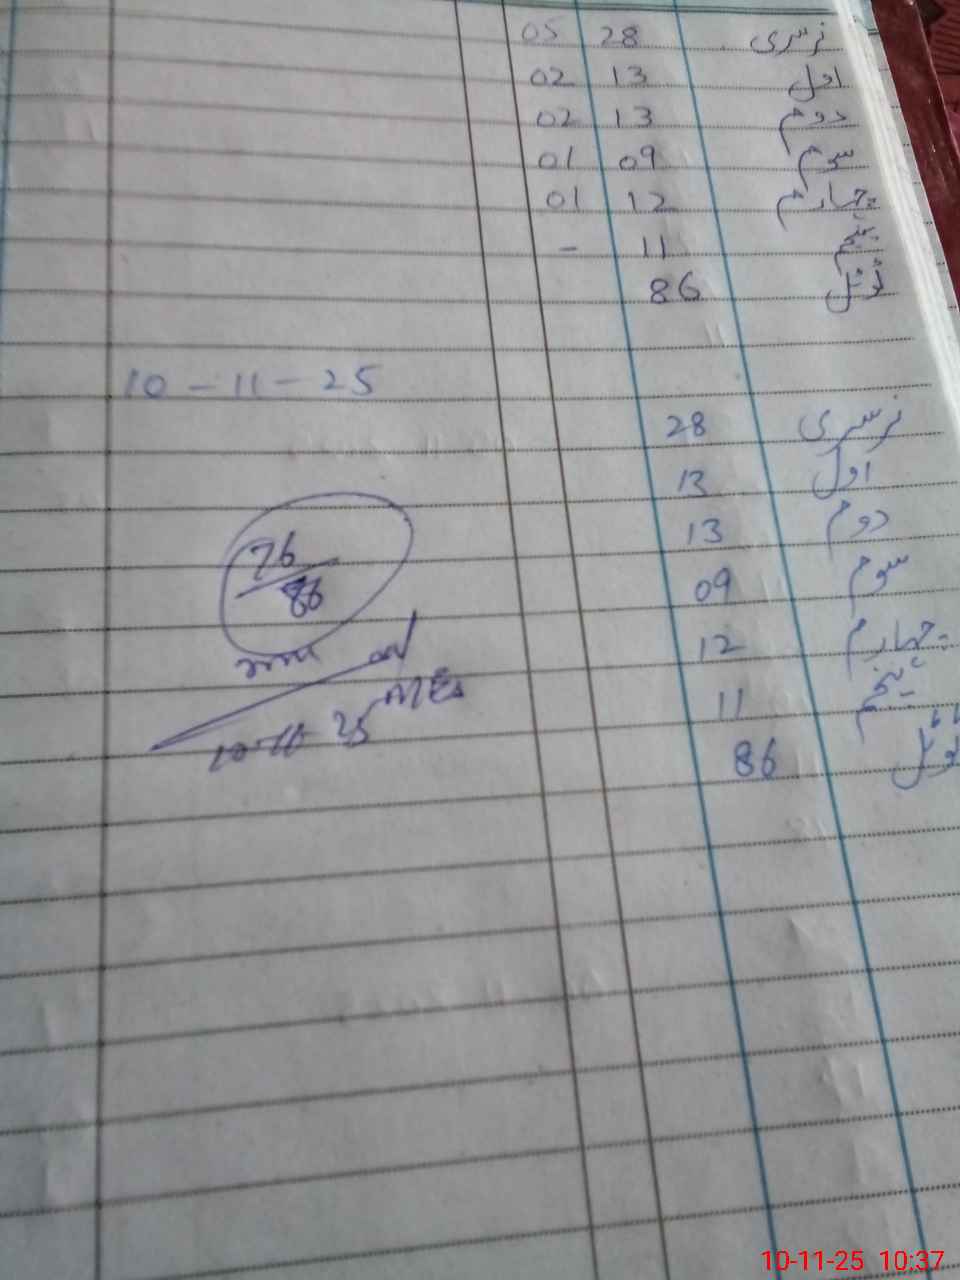 نرسری 28 05
اول 13 02
دوم 13 02
سوم 09 01
چہارم 12 01
پنجم 11 -
ٹوٹل 86
10-11-25
نرسری 28
اول 13
دوم 13
سوم 09
چہارم 12
پنجم 11
ٹوٹل 86
76
86
10-11-25
10-11-25 10:37